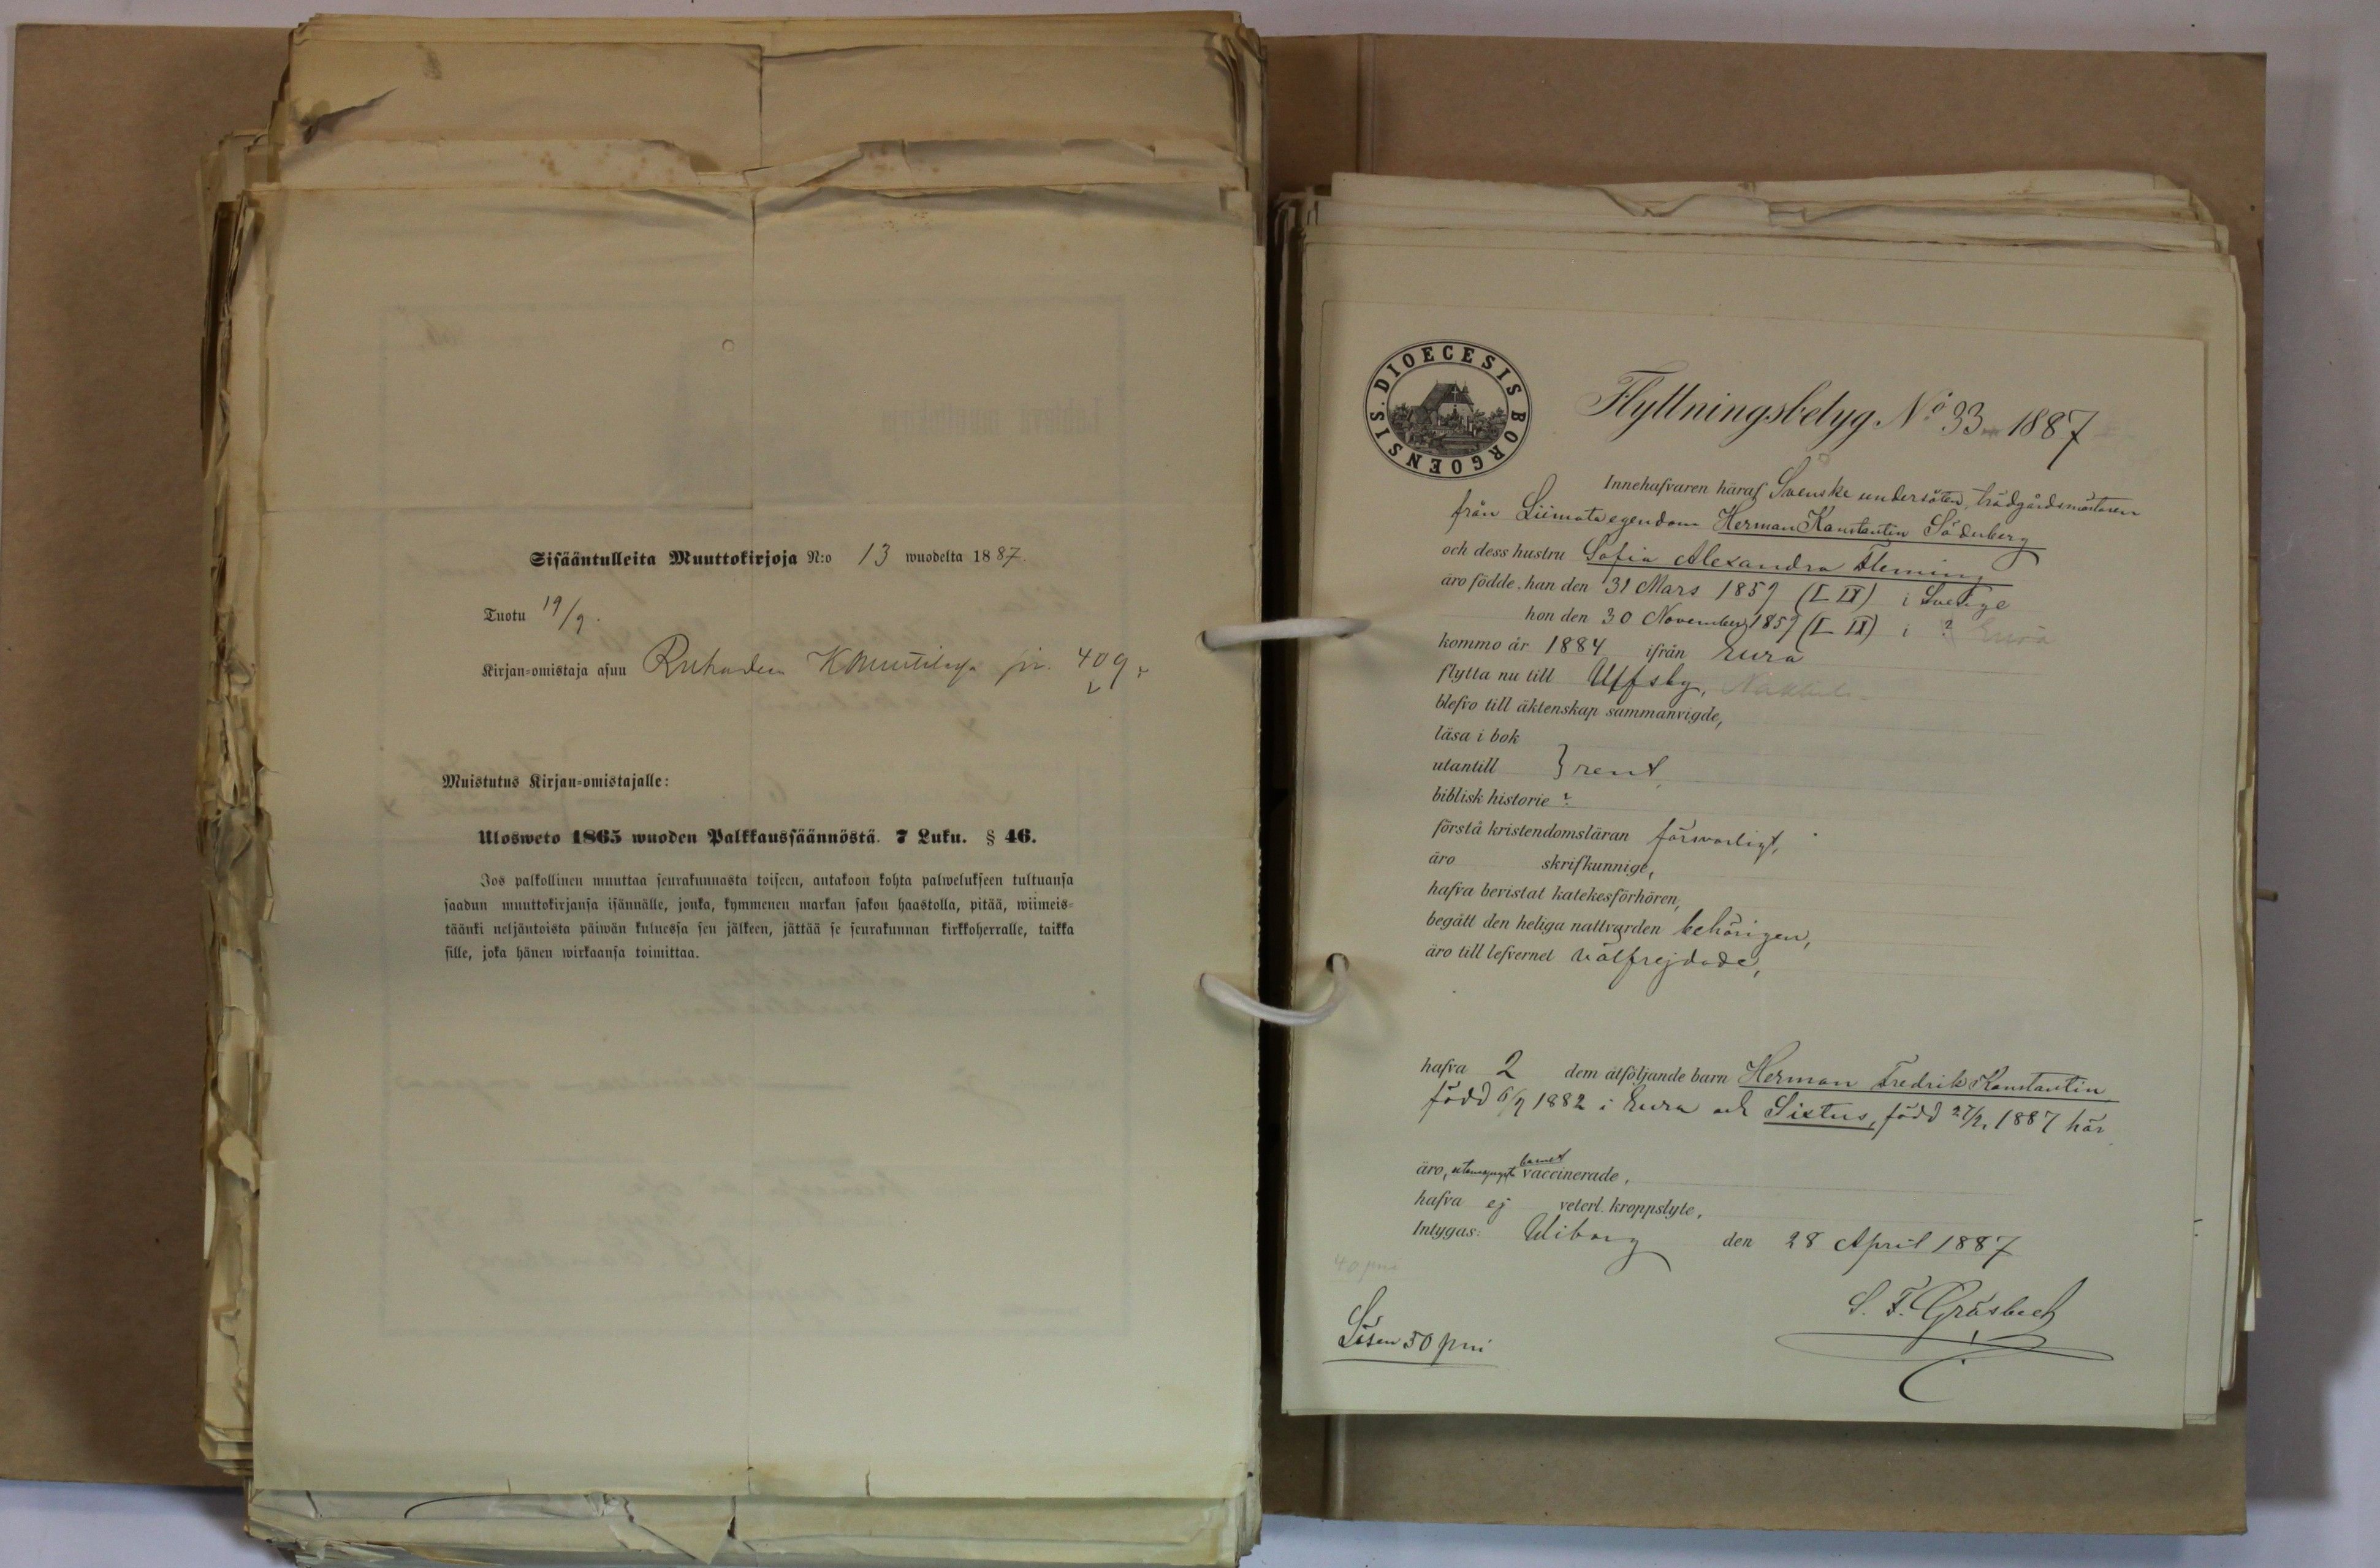 Sisääntulleita Muuttokirjoja N:o 13 wuodelta 1887.
Tuotu 19/9.
Kirjan-omistaja asuu 409
Muistutus Kirjan-omistajalle:
Ulosweto 1865 wuoden Palkkaussäännöstä. 7 Luku. § 46.
Jos palkollinen muuttaa seurakunnasta toiseen, antakoon kohta palwelukseen tultuansa
saadun muuttokirjansa isännälle, jonka, kymmenen markan sakon haastolla, pitää, wiimeis-
täänki neljäntoista päiwän kuluessa sen jälkeen, jättää se seurakunnan kirkkoherralle, taikka
sille, joka hänen wirkaansa toimittaa.
DIOECESIS BORGOENSIS.
Flyttningsbetyg No 33 1887
Innehafvaren häraf Svenske undersåten, trädgårdsmästaren
från Liimata egendom Herman Konstantin Söderberg
och dess hustru Sofia Alexandra Fleming
äro födde, han den 31 Mars 1859 (I II) i Sverige
hon den 30 November 1859 (I II) i ? Eura
kommo år 1884 ifrån Eura
flytta nu till Ulfsby,
blefvo till äktenskap sammanvigde,
läsa i bok
utantill } rent,
biblisk historie ?
förstå kristendomsläran försvarligt,
äro skrifkunnige,
hafva bevistat katekesförhören,
begått den heliga nattvarden behörigen,
äro till lefvernet välfrejdade,
hafva 2 dem åtföljande barn Herman Fredrik Konstantin
född 6/9 1882 i Eura och Sixtus, född 27/2 1887 här
äro, utom yngsta barnet vaccinerade,
hafva ej veterl. kroppslyte,
Intygas: Wiborg den 28 April 1887
40 pni
S. F. Gräsbeck
Lösen 50 pni